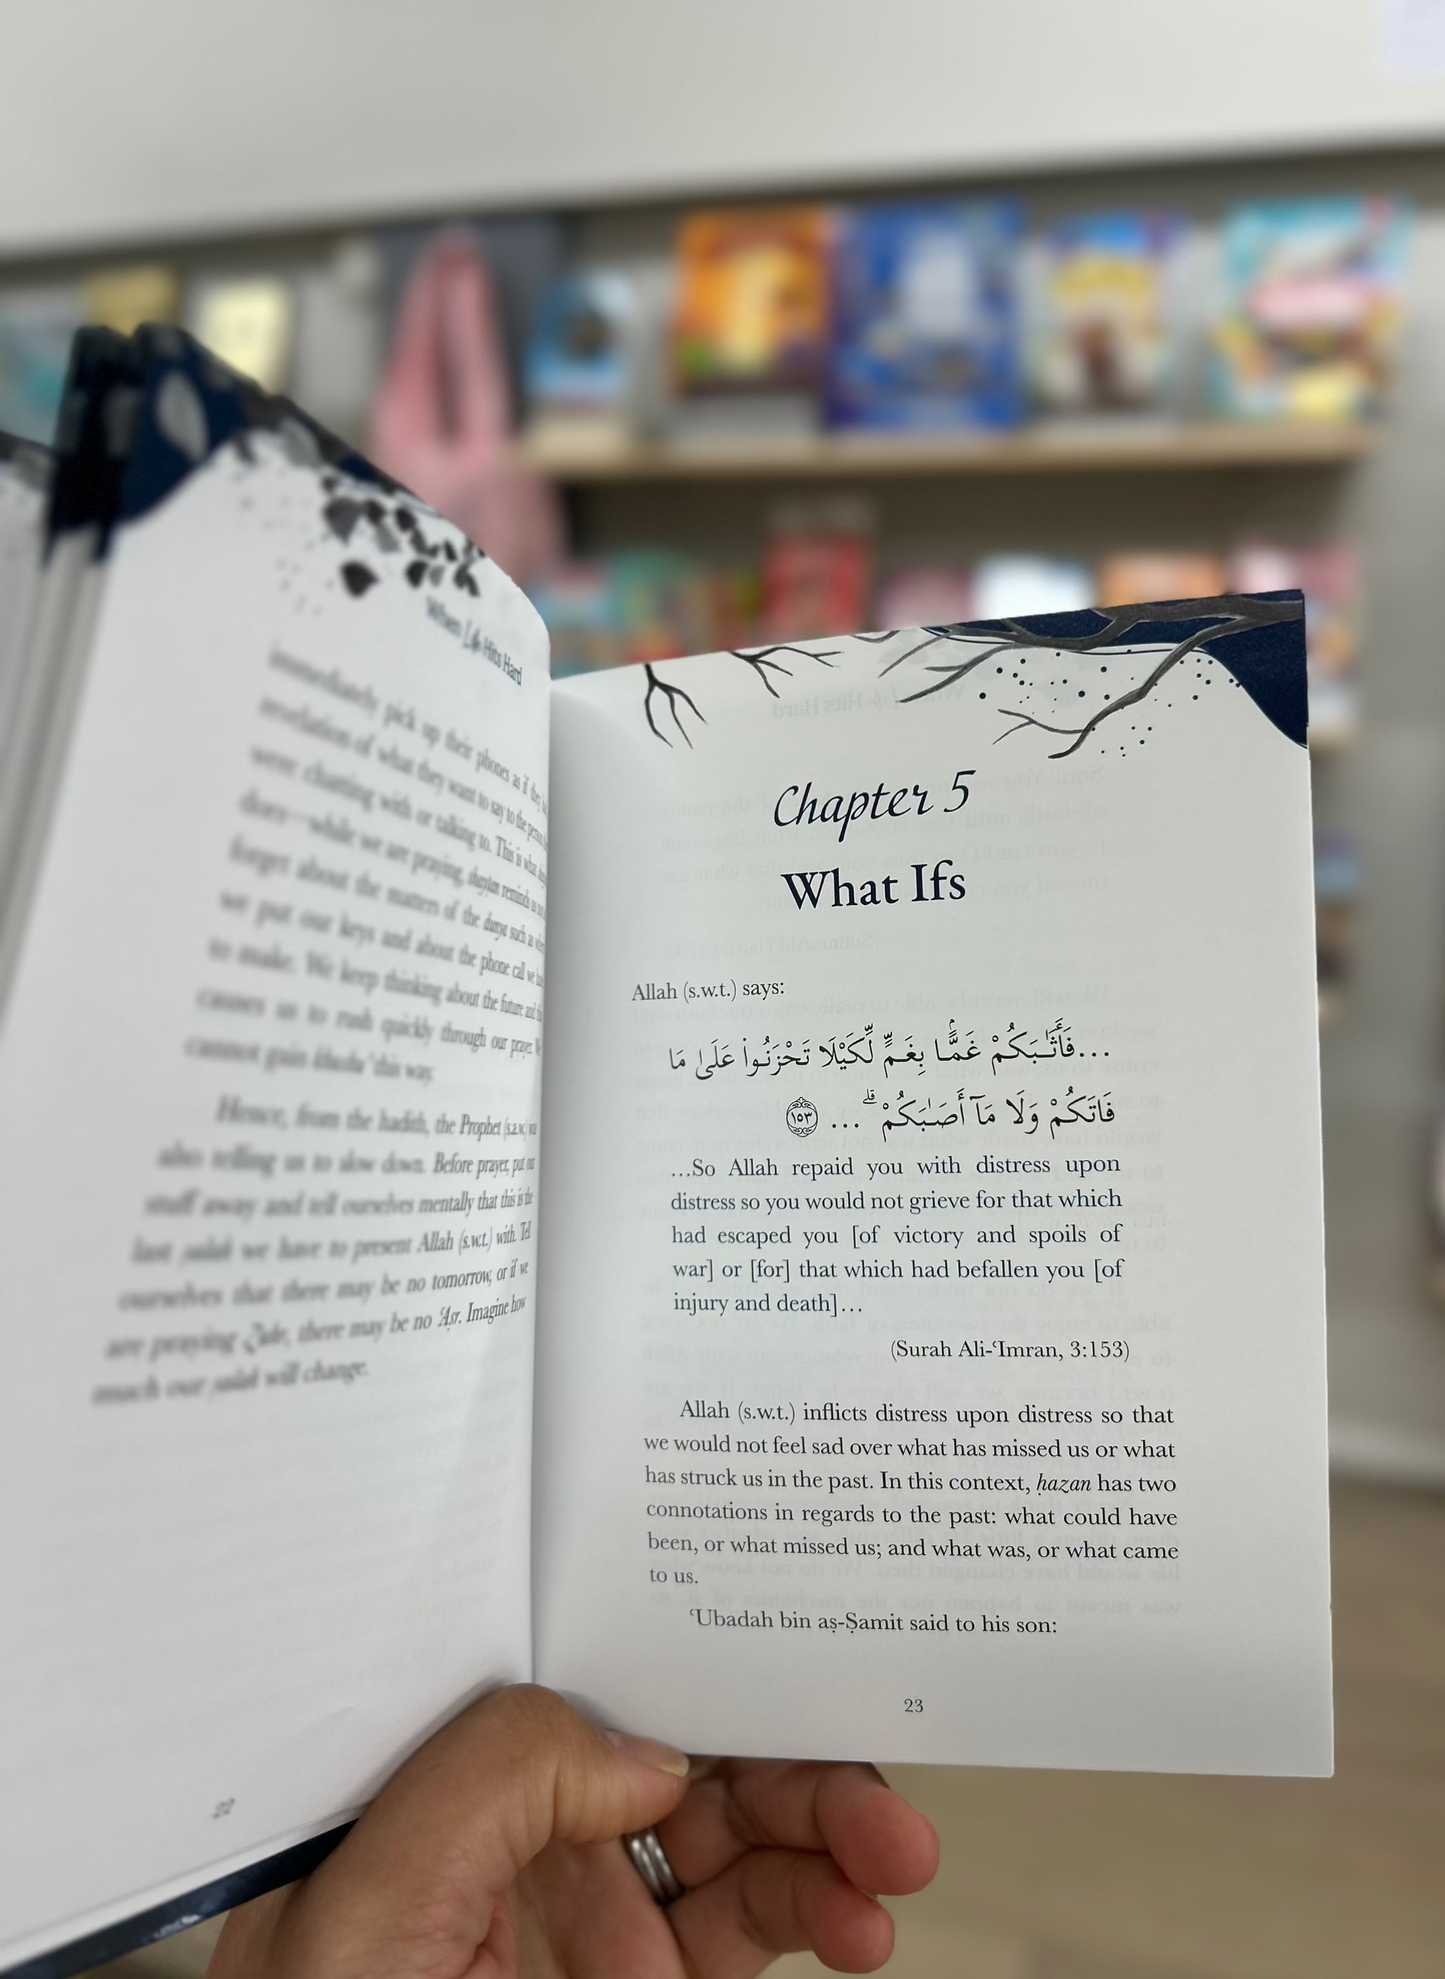 When Life Hits Hard
immediately pick up their phones as if they
revelation of what they want to say to the person
were chatting with or talking to. This is what
does—while we are praying, shaytan reminds us
forget about the matters of the dunya such as where
we put our keys and about the phone call we have
to make. We keep thinking about the future and this
causes us to rush quickly through our prayer. We
cannot gain khushu‘ this way.
Hence, from the hadith, the Prophet (s.a.w.) was
also telling us to slow down. Before prayer, put our
stuff away and tell ourselves mentally that this is the
last salah we have to present Allah (s.w.t.) with. Tell
ourselves that there may be no tomorrow, or if we
are praying Zuhr, there may be no ‘Asr. Imagine how
much our salah will change.
22
Chapter 5
What Ifs
Allah (s.w.t.) says:
...فَأَثَـٰبَكُمْ غَمًّۢا بِغَمٍّ لِّكَيْلَا تَحْزَنُوا۟ عَلَىٰ مَا
فَاتَكُمْ وَلَا مَآ أَصَـٰبَكُمْ ۗ ... ١٥٣
…So Allah repaid you with distress upon
distress so you would not grieve for that which
had escaped you [of victory and spoils of
war] or [for] that which had befallen you [of
injury and death]…
(Surah Ali-‘Imran, 3:153)
Allah (s.w.t.) inflicts distress upon distress so that
we would not feel sad over what has missed us or what
has struck us in the past. In this context, ḥazan has two
connotations in regards to the past: what could have
been, or what missed us; and what was, or what came
to us.
‘Ubadah bin aṣ-Ṣamit said to his son:
23